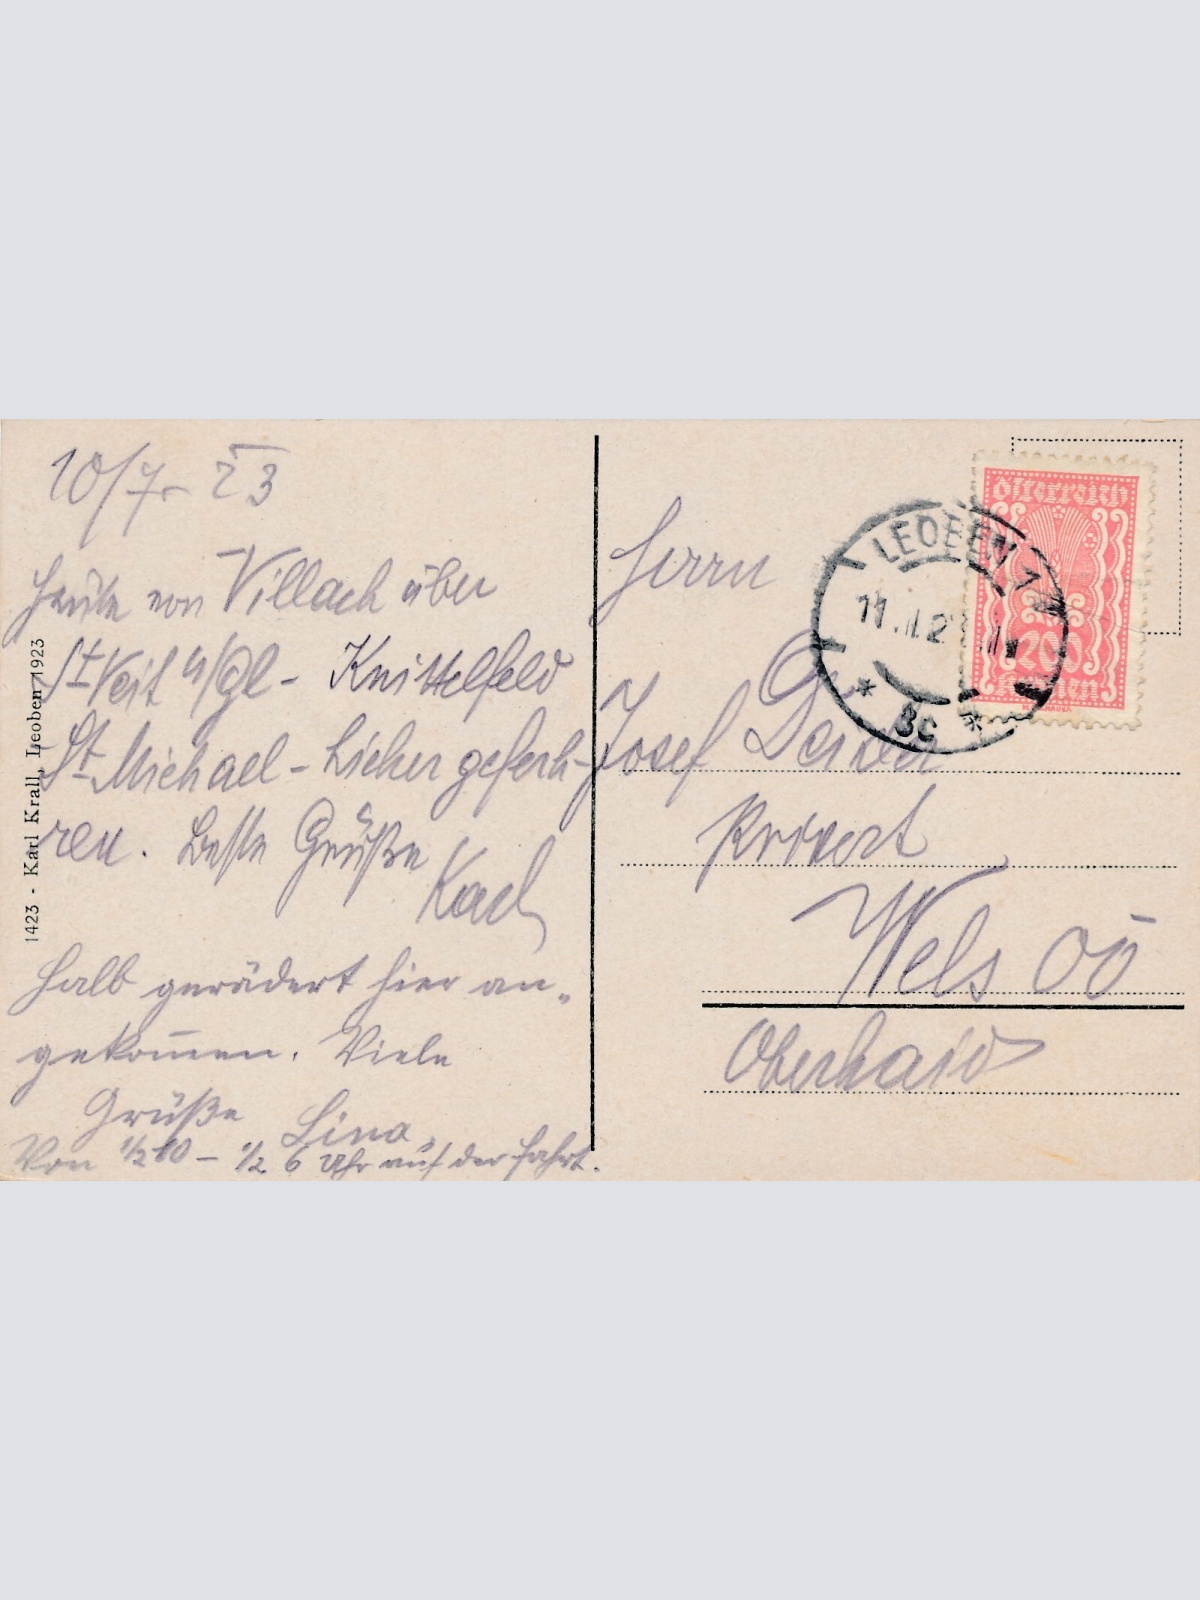 10/7 - 23
Heute von Villach über
St Veit a/Gl - Knittelfeld
St. Michael - hieher gefah-
ren. Beste Grüße
Karl
Halb gerädert hier an-
gekommen. Viele
Grüße Lina.
Von 1/2 10 - 1/2 6 Uhr auf der Fahrt.
1423 - Karl Krall, Leoben 1923
Herrn
Josef
Privat
Wels OÖ
Oberhaid
Österreich
200
Kronen
LEOBEN 1
11.
8c